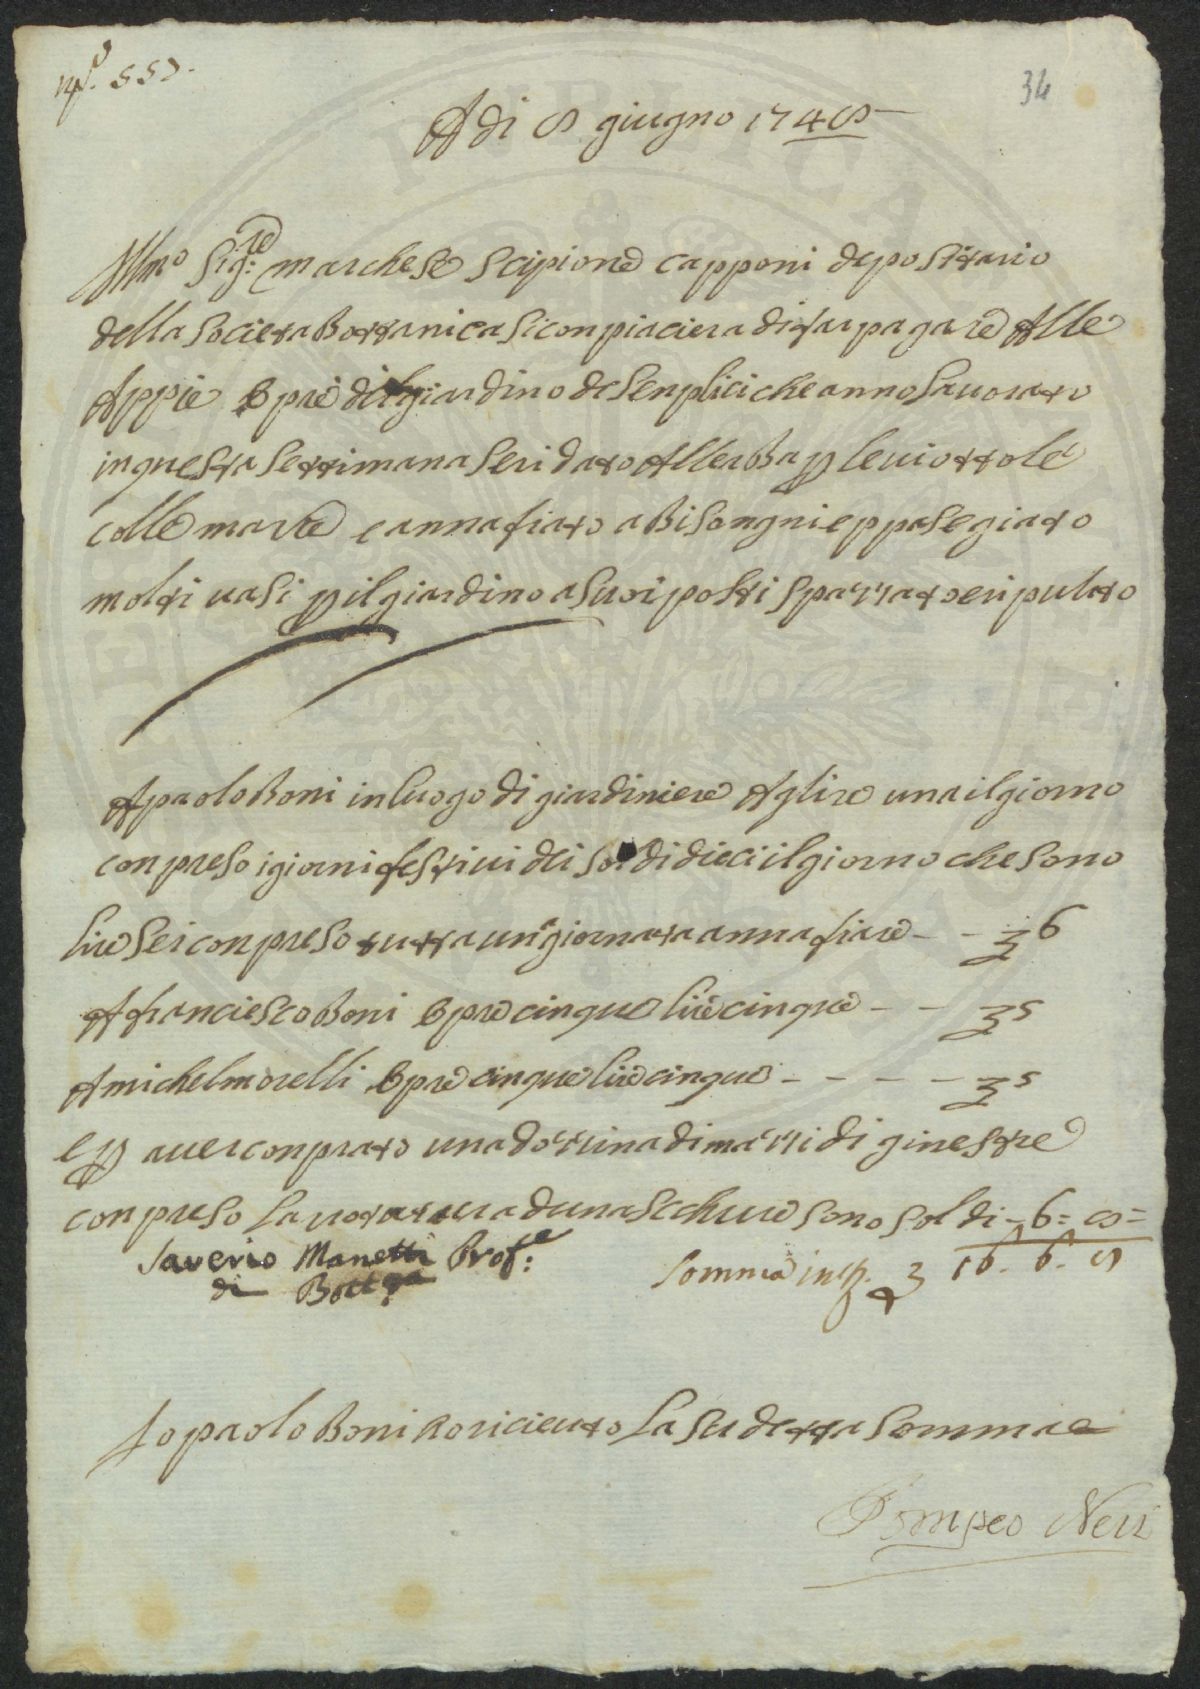 N.º 557.
34
A di 8 giugno 1748
Ill.mo Sig.re marchese Scipione capponi depositario
della Societa Bottanica si conpiaciera di far pagare Alle
Appie Opre del giardino de Senplici che anno lauorato
in questa Settimana
colle marre e annafiato a Bisongni e ppasegiato
molti uasi p il giardino a suoi posti spazzato e ripulito
A paolo Boni in luogo di giardiniere A lire una il giorno
conpreso i giorni festiui di soldi dieci il giorno che sono
lire sei conpreso tutta un giornata annafiare - - £ 6
A franciesco Boni Opre cinque lire cinque - - £ 5
A michel morelli Opre cinque lire cinque - - - - - £ 5
e p auer conprato una dozzina di mazzi di ginestre
conpreso La rotatura duna schure sono soldi - 6 = 8 =
Saverio Manetti Prof.e
di Bott.ca
Somma in £ 16. 6. 8
Io paolo Boni o riceuto La sudetta Somma
Pompeo Neri